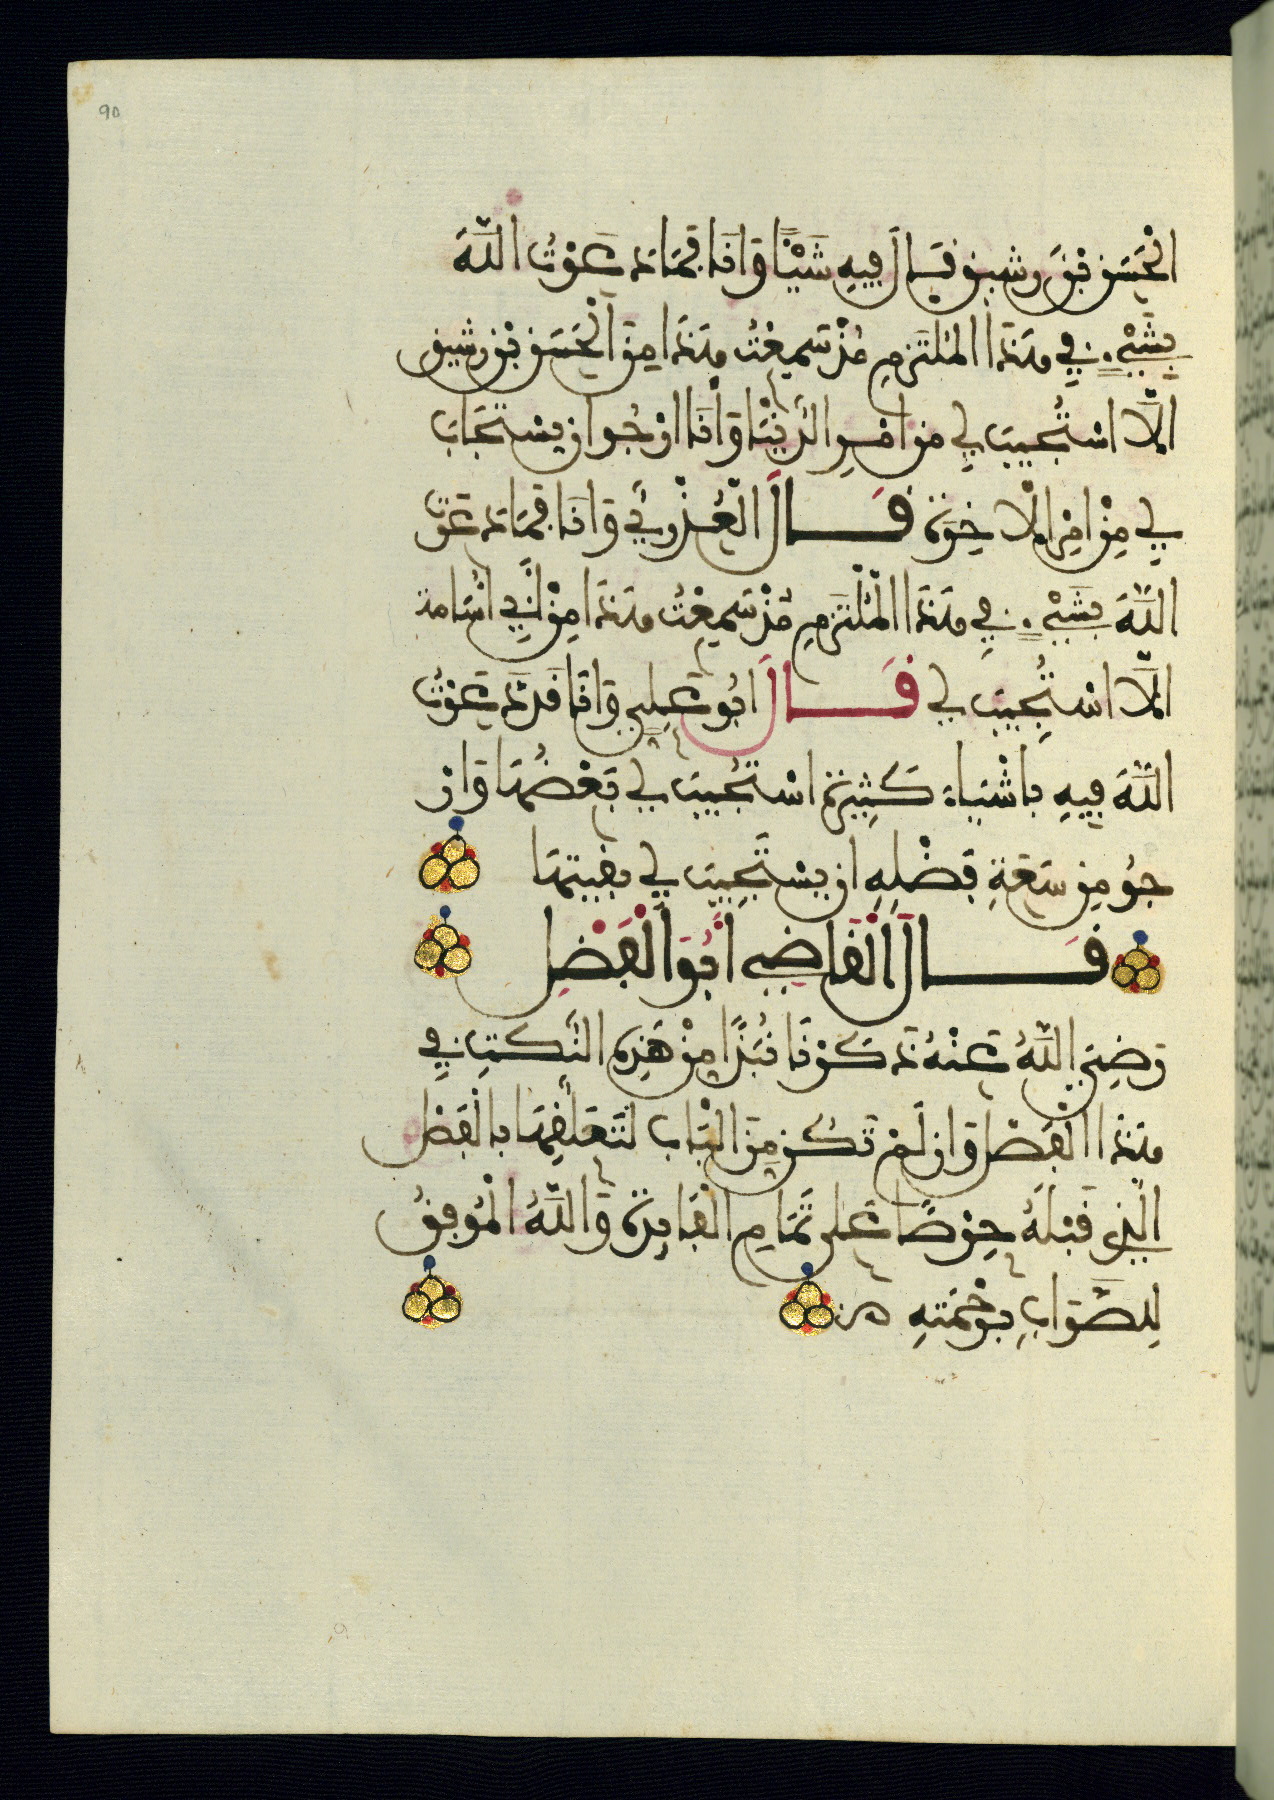 الْحَسَن بْنَ رشيق قَالَ فِيهِ شَيْئًا وَانَا فَمَا دَعَوْتُ اللَّهَ
بِشَيْءٍ فِي هَذَا الْمُلْتَزَمِ مُذْ سَمِعْتُ هَذَا مِنَ الْحَسَن بْن رشيق
الَّا اسْتُجِيبَ لِي من امْرِ الدُّنْيَا وَأَنَا ارْجُو ان يسْتجَابَ
لِي مِنْ امْرِ الْاخِرَة قَالَ الْعُذْرِيُّ وَانَا فَمَا دَعَوْتُ
اللَّهَ بِشَيْءٍ فِي هَذَا الْمُلْتَزَمِ مُذْ سَمِعْتُ هَذَا مِنْ أَبِي اسَامة
الَّا اسْتُجِيبَ لِي قَالَ ابُو عَلِي وَانَا فَقَدْ دَعَوْتُ
اللَّهَ فِيهِ بِاشْيَاء كَثِيرَة اسْتُجِيبَ لِي بَعْضُهَا وَارْ
جُو مِن سَعَةِ فَضْلِهِ ان يسْتَجِيبَ لِي بقيتهَا
قَالَ الْقَاضِي أَبُو الْفَضْلِ
رَضِيَ اللَّهُ عَنْهُ ذَكَرْنَا نُبَذًا مِنْ هَذِهِ النُّكَتِ فِي
هَذَا الْفَصْلِ وَان لَمْ تَكُن مِنَ الْبَاب لِتَعَلُّقِهَا بِالْفَصْلِ
الَّذِي قَبْلَهُ حِرْصًا عَلَى تَمَامِ الْفَائِدَة وَاللَّهُ الْمُوَفِّقُ
لِلصَّوَابِ بِرَحْمَتهِ